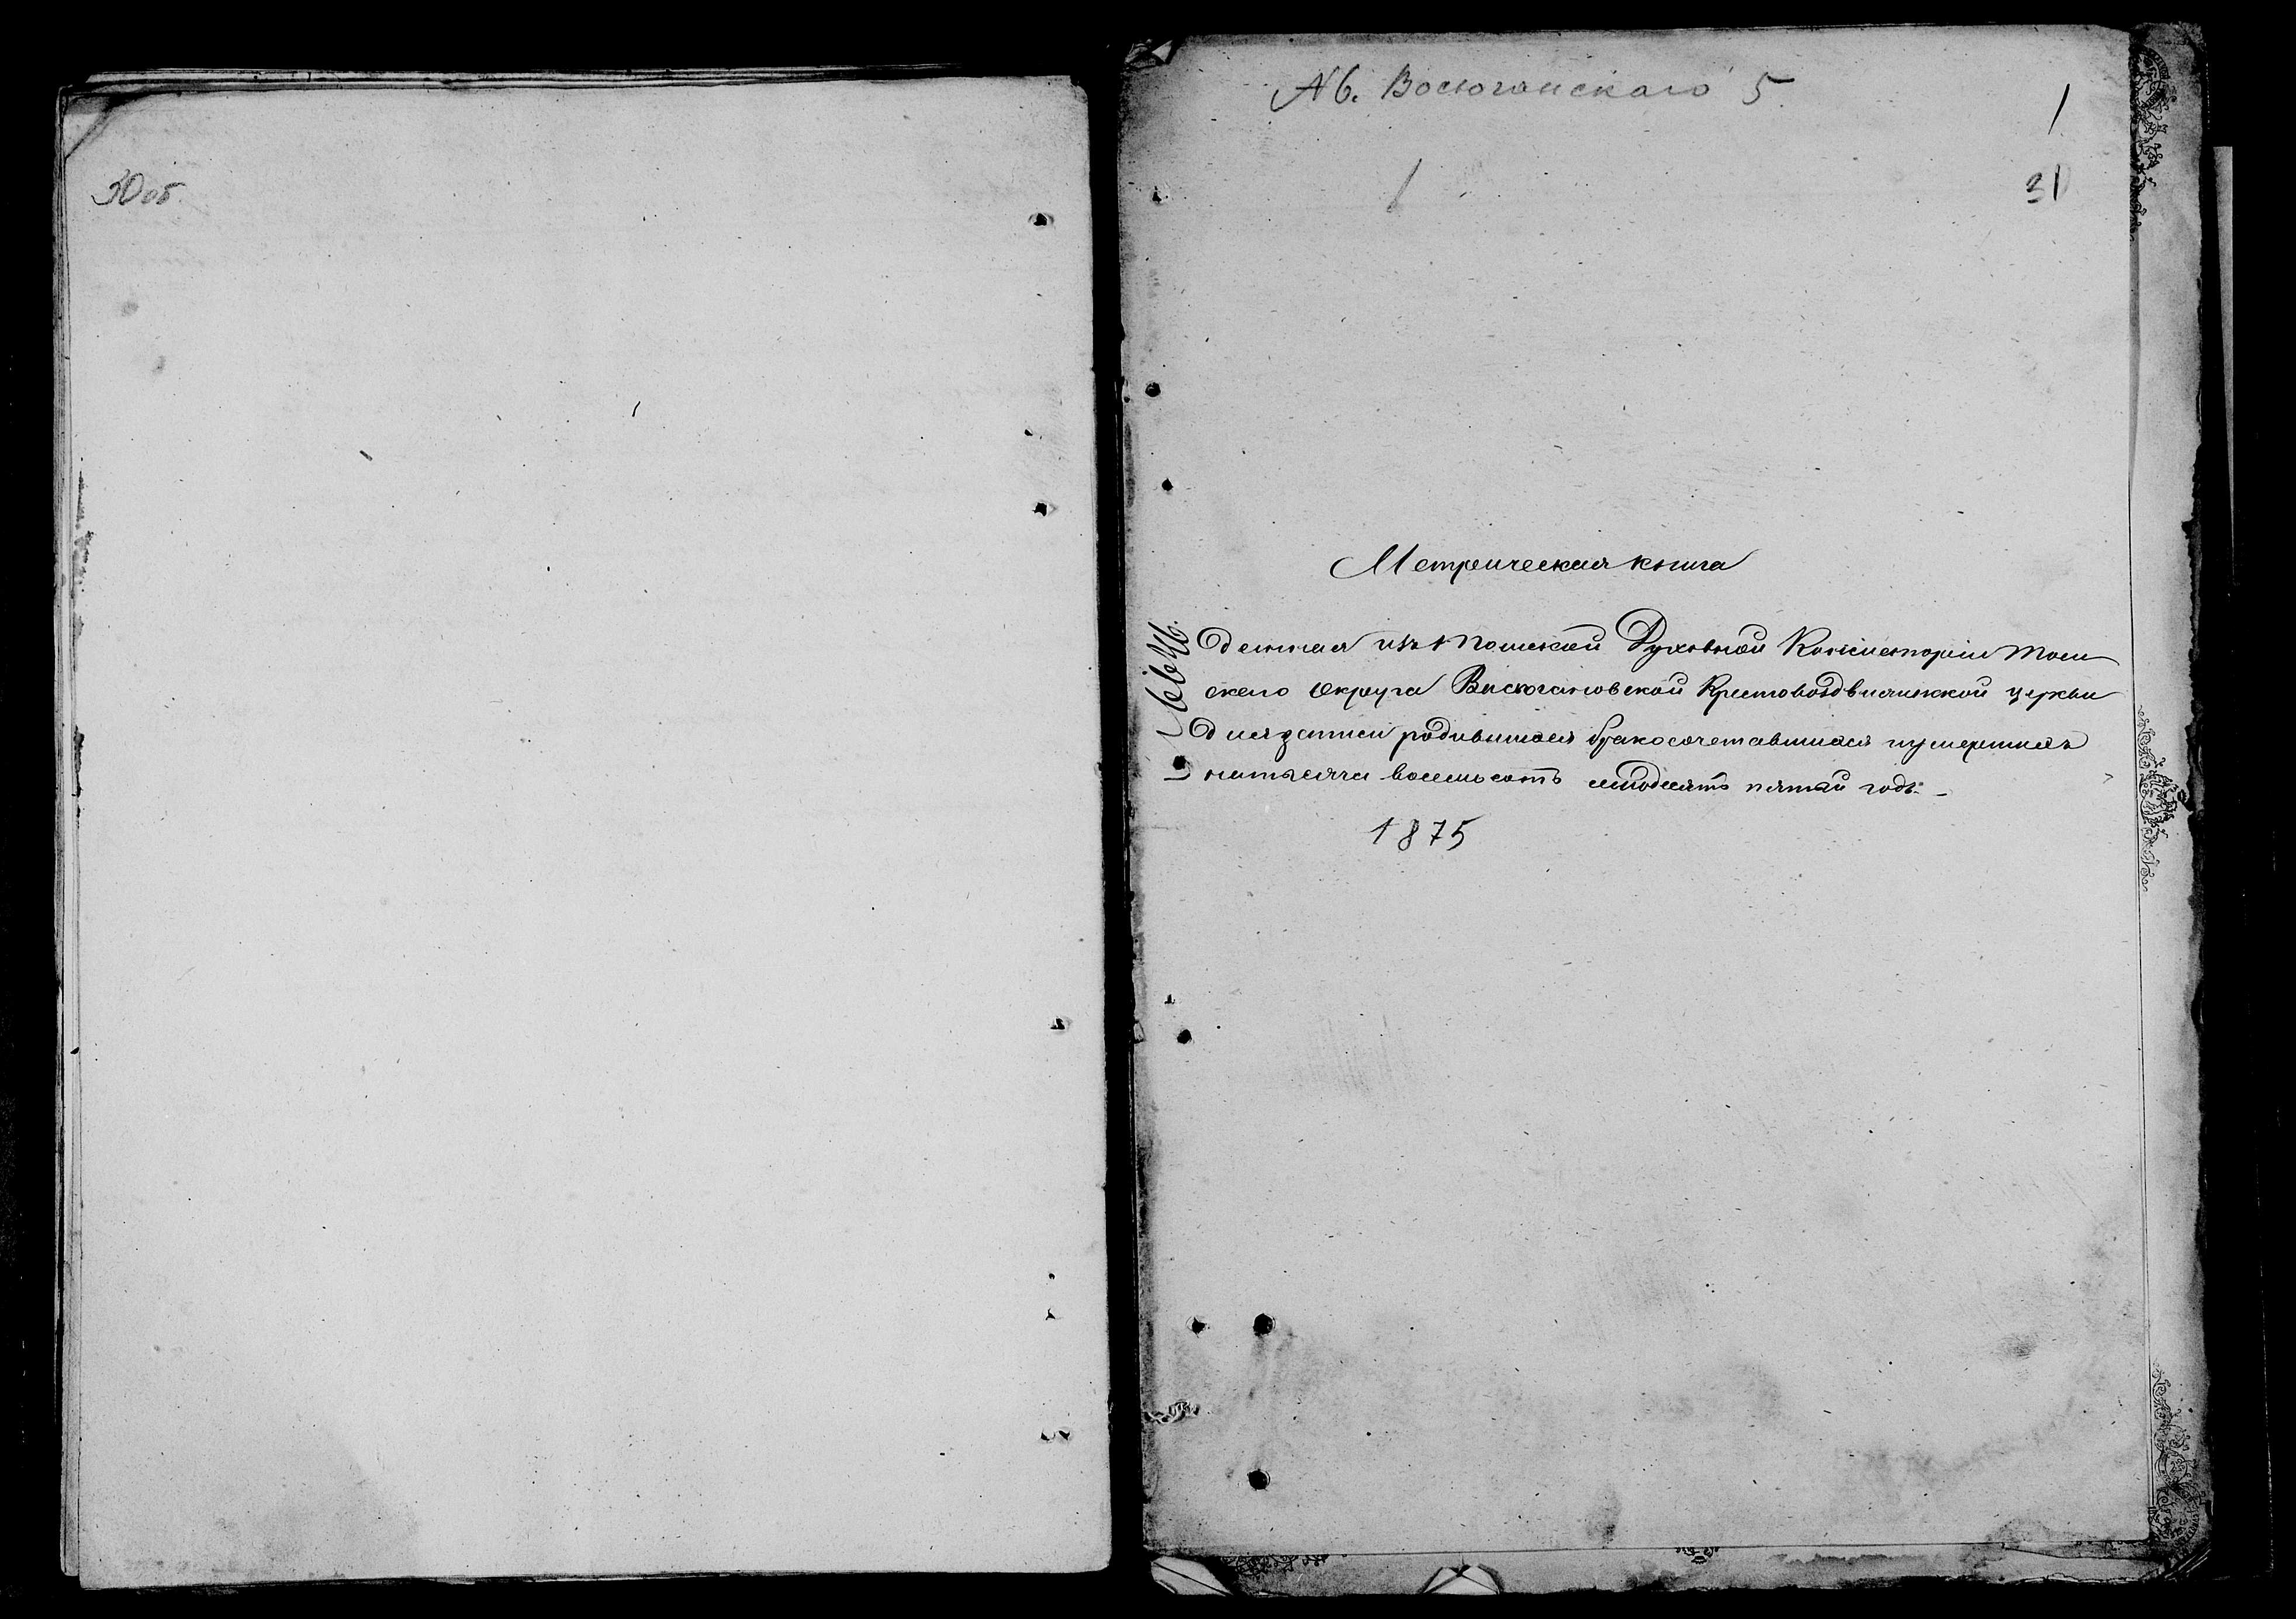 30 об.
№ 6. Восюганскаго 5.
1
31
Метрическая книга
Данная изъ Томской Духовной Консисторіи Том
скаго Округа Васюгановской Крестовоздвиженской церкви
Для записи родившихся бракосочетавшихся и умершихъ
на тысяча восемьсотъ семьдесятъ пятый годъ.
1875